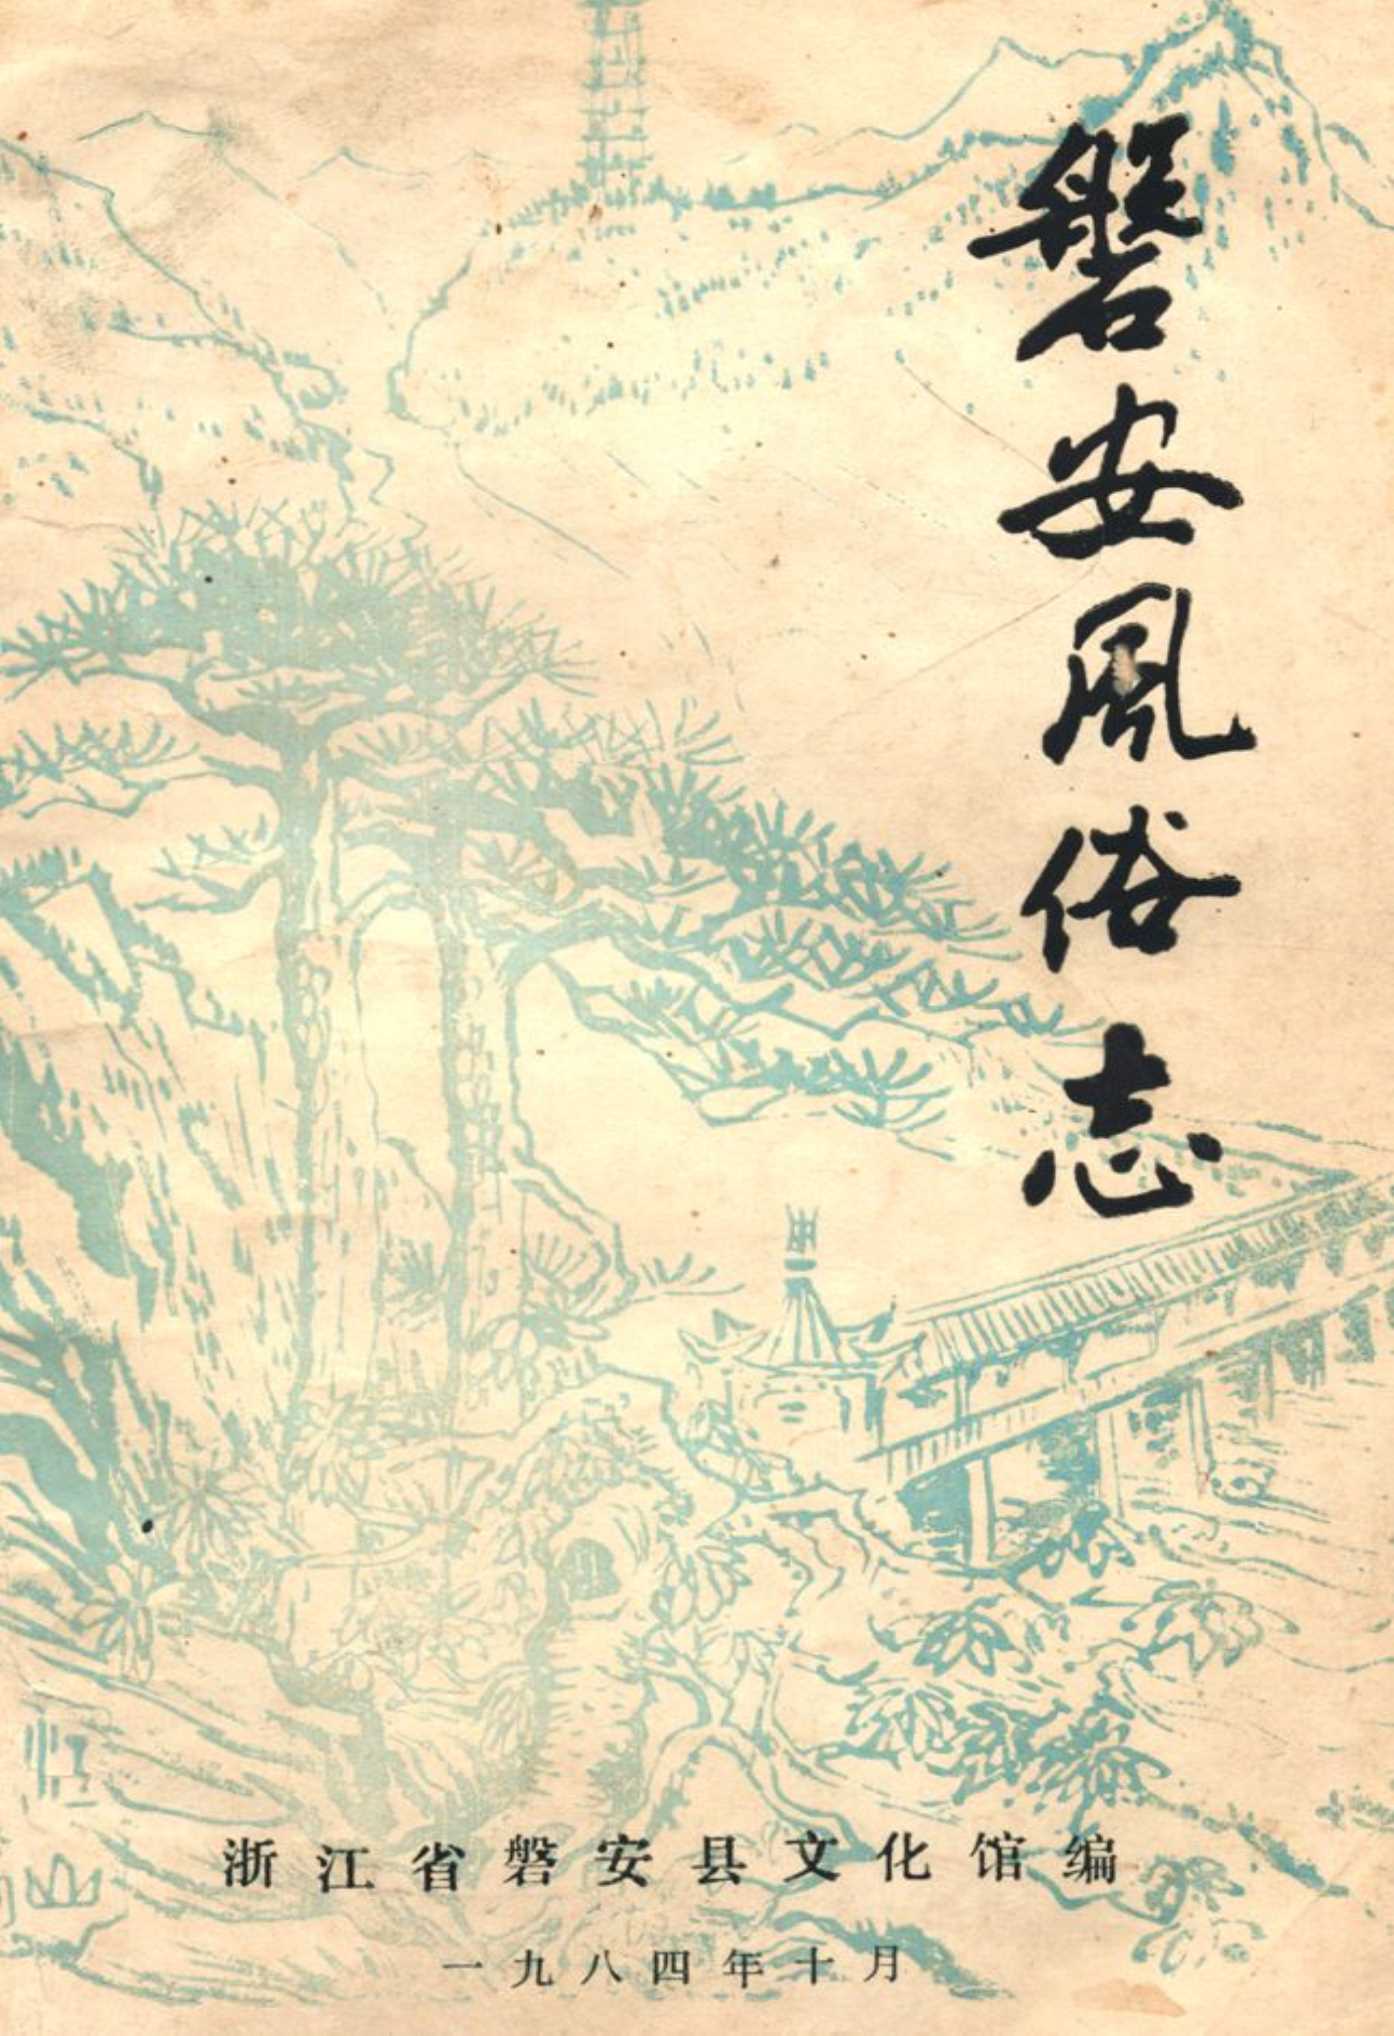 磐安风俗志
江山
浙江省磐安县文化馆编
一九八四年十月